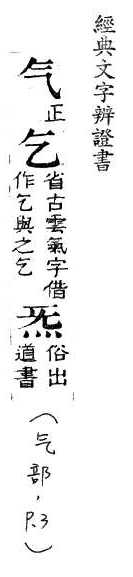 經典文字辨證書
气正乞省古雲氣字借作乞與之乞炁俗出道書
(气部,P.3)